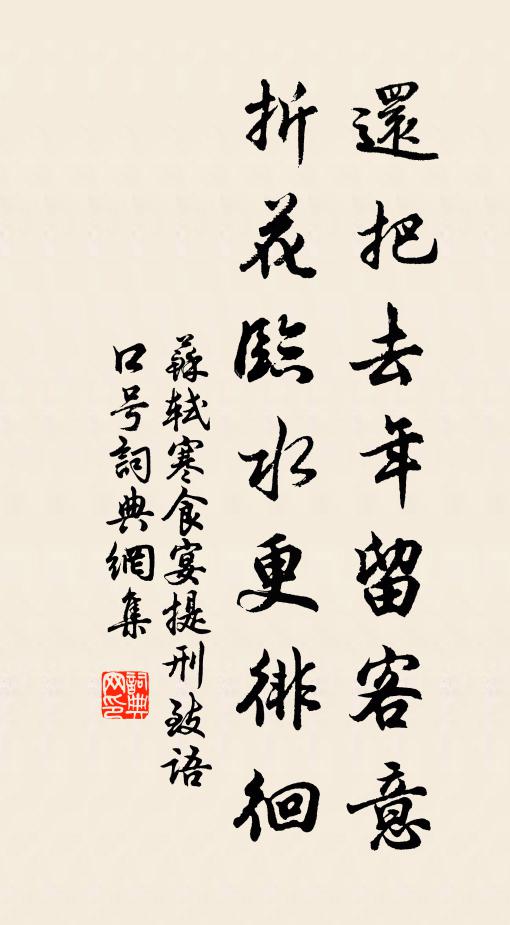 還把去年留客意
折花臨水更徘徊
蘇軾寒食宴提刑致語
口号詞典網集
詞典网印